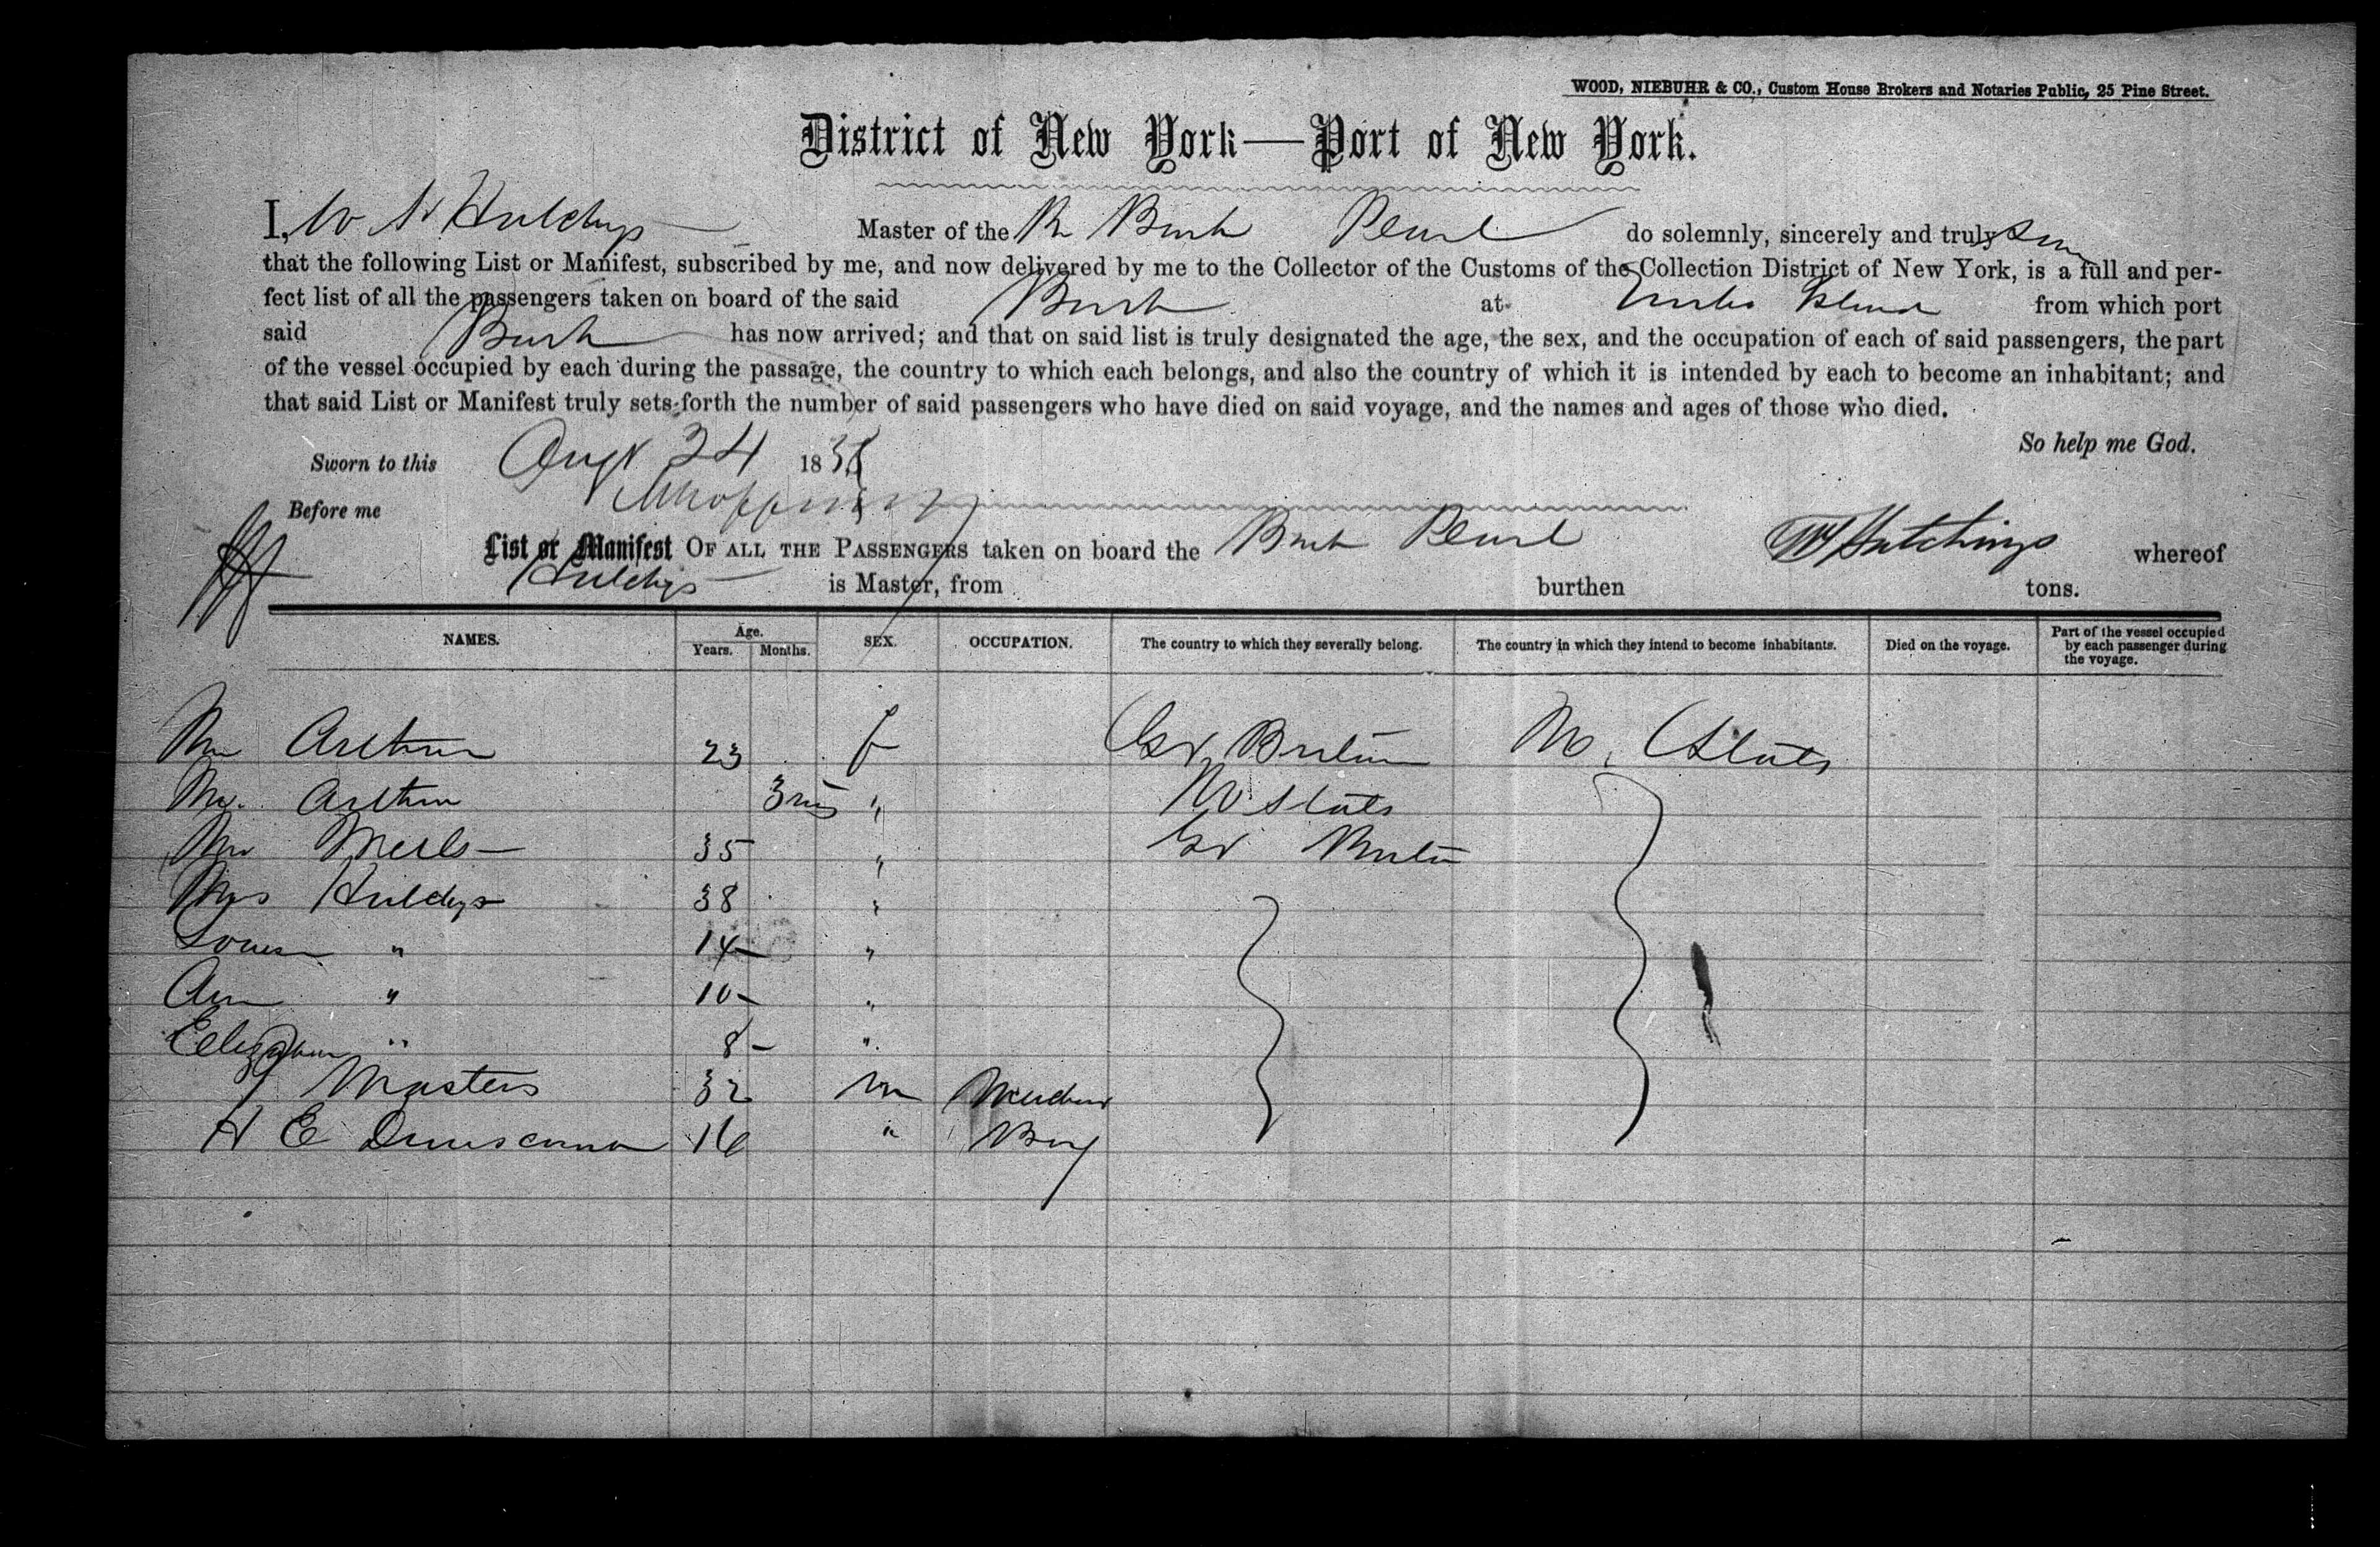 WOOD, NIEBUHR & CO., Custom House Brokers and Notaries Public, 25 Pine Street.
District of New York—Port of New York.
I, W H Hutchgs Master of the Br Bark Pearl do solemnly, sincerely and truly
that the following List or Manifest, subscribed by me, and now delivered by me to the Collector of the Customs of the Collection District of New York, is a full and per-
fect list of all the passengers taken on board of the said Bark at Island from which port
said Bark has now arrived; and that on said list is truly designated the age, the sex, and the occupation of each of said passengers, the part
of the vessel occupied by each during the passage, the country to which each belongs, and also the country of which it is intended by each to become an inhabitant; and
that said List or Manifest truly sets forth the number of said passengers who have died on said voyage, and the names and ages of those who died.
So help me God.
Sworn to this Augt 24 18
Before me
List or Manifest OF ALL THE PASSENGERS taken on board the Bark Pearl W Hutchings whereof
Hutchgs is Master, from burthen tons.
NAMES. Age. Years. Months. SEX. OCCUPATION. The country to which they severally belong. The country in which they intend to become inhabitants. Died on the voyage. Part of the vessel occupied by each passenger during the voyage.
Arthur 23 f Gt Britain U States
Arthur 3 ms " U States
35 " Gt Britn
Mrs Hutchgs 38 "
Louisa " 14 "
Ann " 10 "
" 8 "
Masters 32 m
H E Dunscomb 16 " Boy